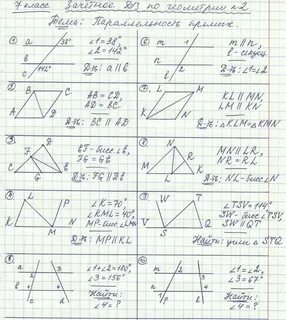 7 класс Зачётное ДКЗ по геометрии №2
Тема: Параллельность прямых.
①
a
b
c
38°
142°
∠1=38°
∠2=142°
Д-ть: a∥b
②
A
B
C
D
AB=CD,
AD=BC.
Д-ть: BC∥AD
③
F
D
C
G
B
BF-бисс.∠B,
FG=GB
Д-ть: FG∥DB
④
K
L
M
N
P
∠K=70°,
∠KML=40°,
MP-бисс.∠LMN
Д-ть: MP∥KL
⑤
a
b
c
d
1
2
3
4
∠1+∠2=180°
∠3=156°
Найти:
∠4=?
⑥
m
n
b
1
2
m∥n,
b-секущ.
Д-ть: ∠1=∠2
⑦
K
L
M
N
KL∥MN,
LM∥KN
Д-ть: △KLM=△KMN
⑧
M
N
R
L
MN∥LR,
NR=RL
Д-ть: NL-бисс.∠
⑨
V
W
T
Q
S
∠TSV=114°
SW-бисс.∠TSV,
SW∥QT
Найти: углы △STQ
⑩
m
n
1
2
3
4
∠1=∠2,
∠3=67°
Найти:
∠4=?